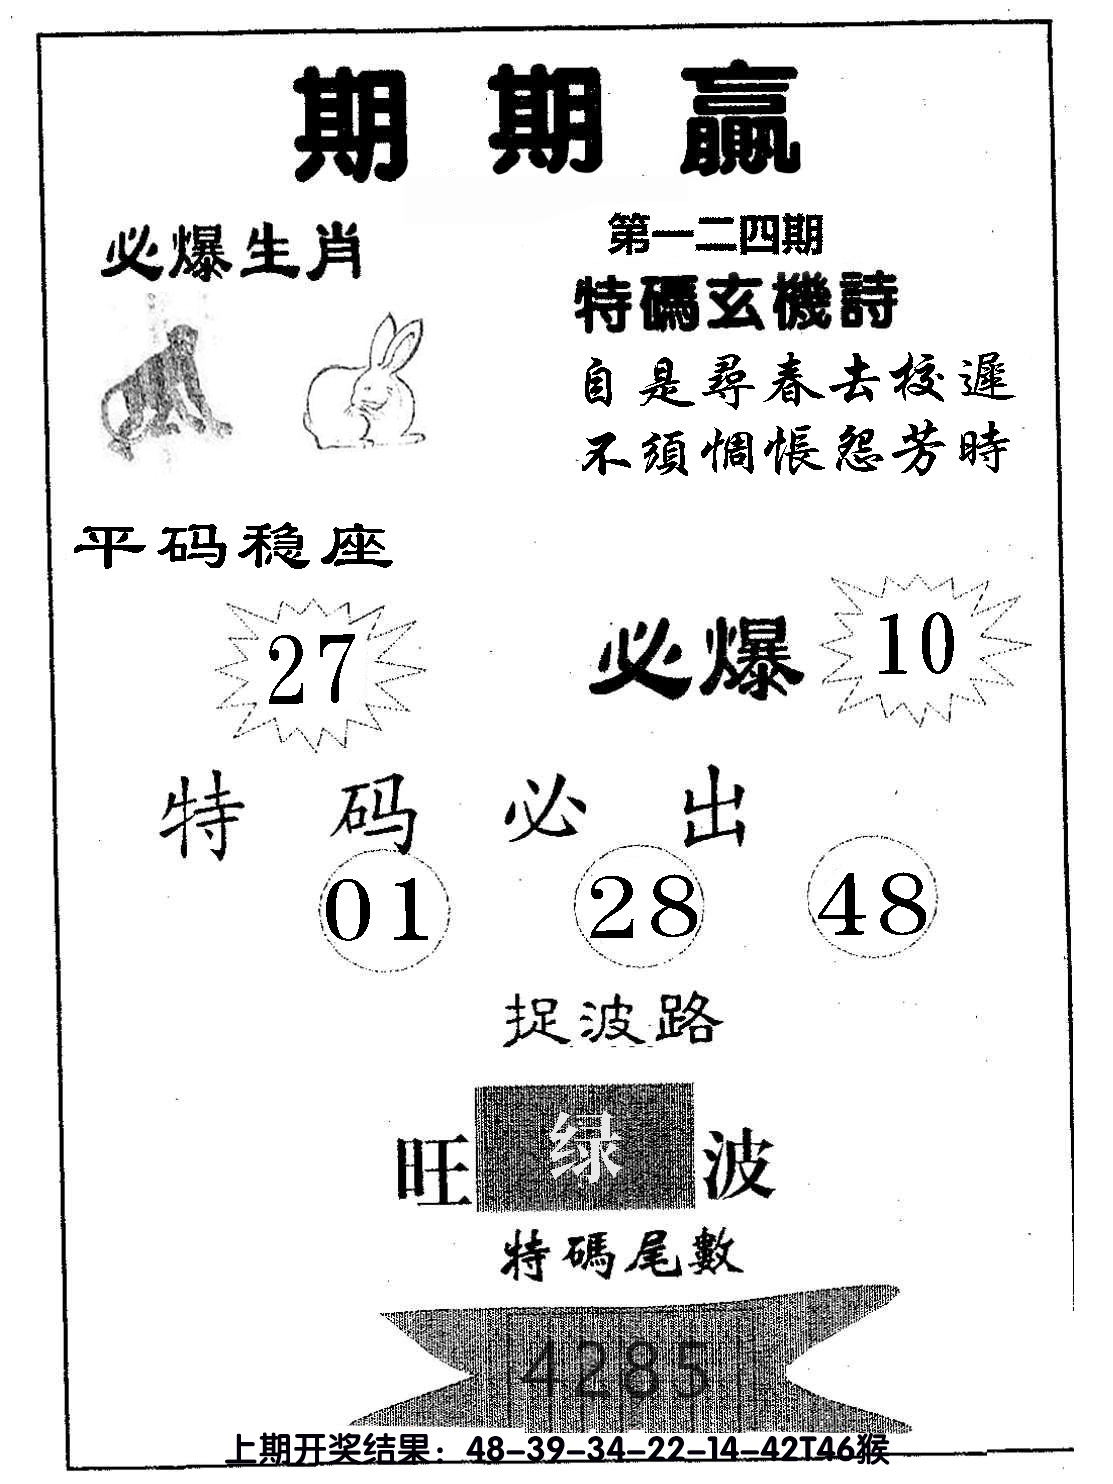 期期贏
必爆生肖
第一二四期
特碼玄機詩
自是尋春去校遲
不須惆悵怨芳時
平码稳座
27
必爆 10
特码必出
01 28 48
捉波路
旺 绿 波
特碼尾數
4285
上期开奖结果：48-39-34-22-14-42T46猴